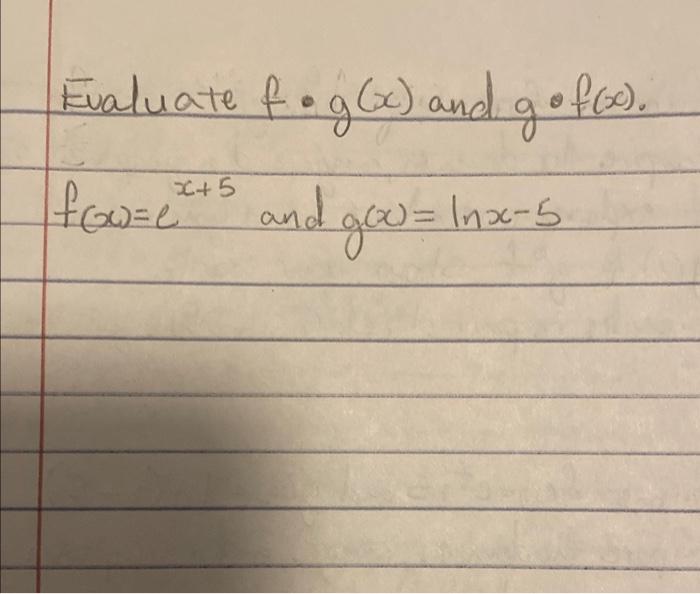 Evaluate f • g(x) and g • f(x).
f(x)=e^x+5 and g(x)= lnx-5